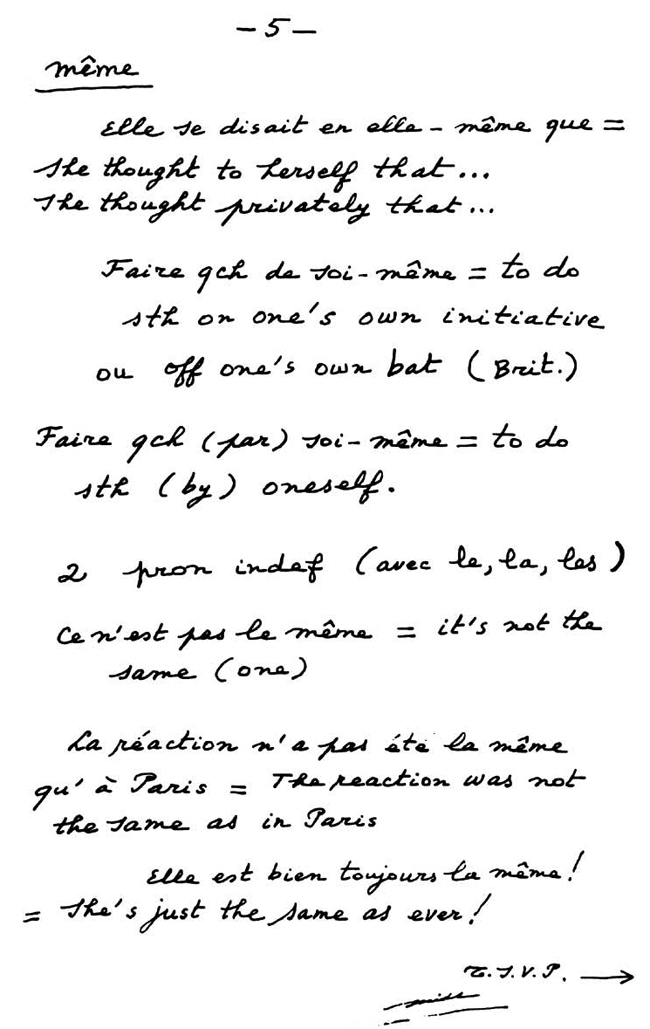 - 5 -
même
Elle se disait en elle-même que =
She thought to herself that...
She thought privately that...
Faire qch de soi-même = to do
sth on one's own initiative
ou off one's own bat (Brit.)
Faire qch (par) soi-même = to do
sth (by) oneself.
2 pron indef (avec le, la, les)
Ce n'est pas le même = it's not the
same (one)
La réaction n'a pas été la même
qu'à Paris = The reaction was not
the same as in Paris
Elle est bien toujours la même!
= She's just the same as ever!
T.S.V.P. →